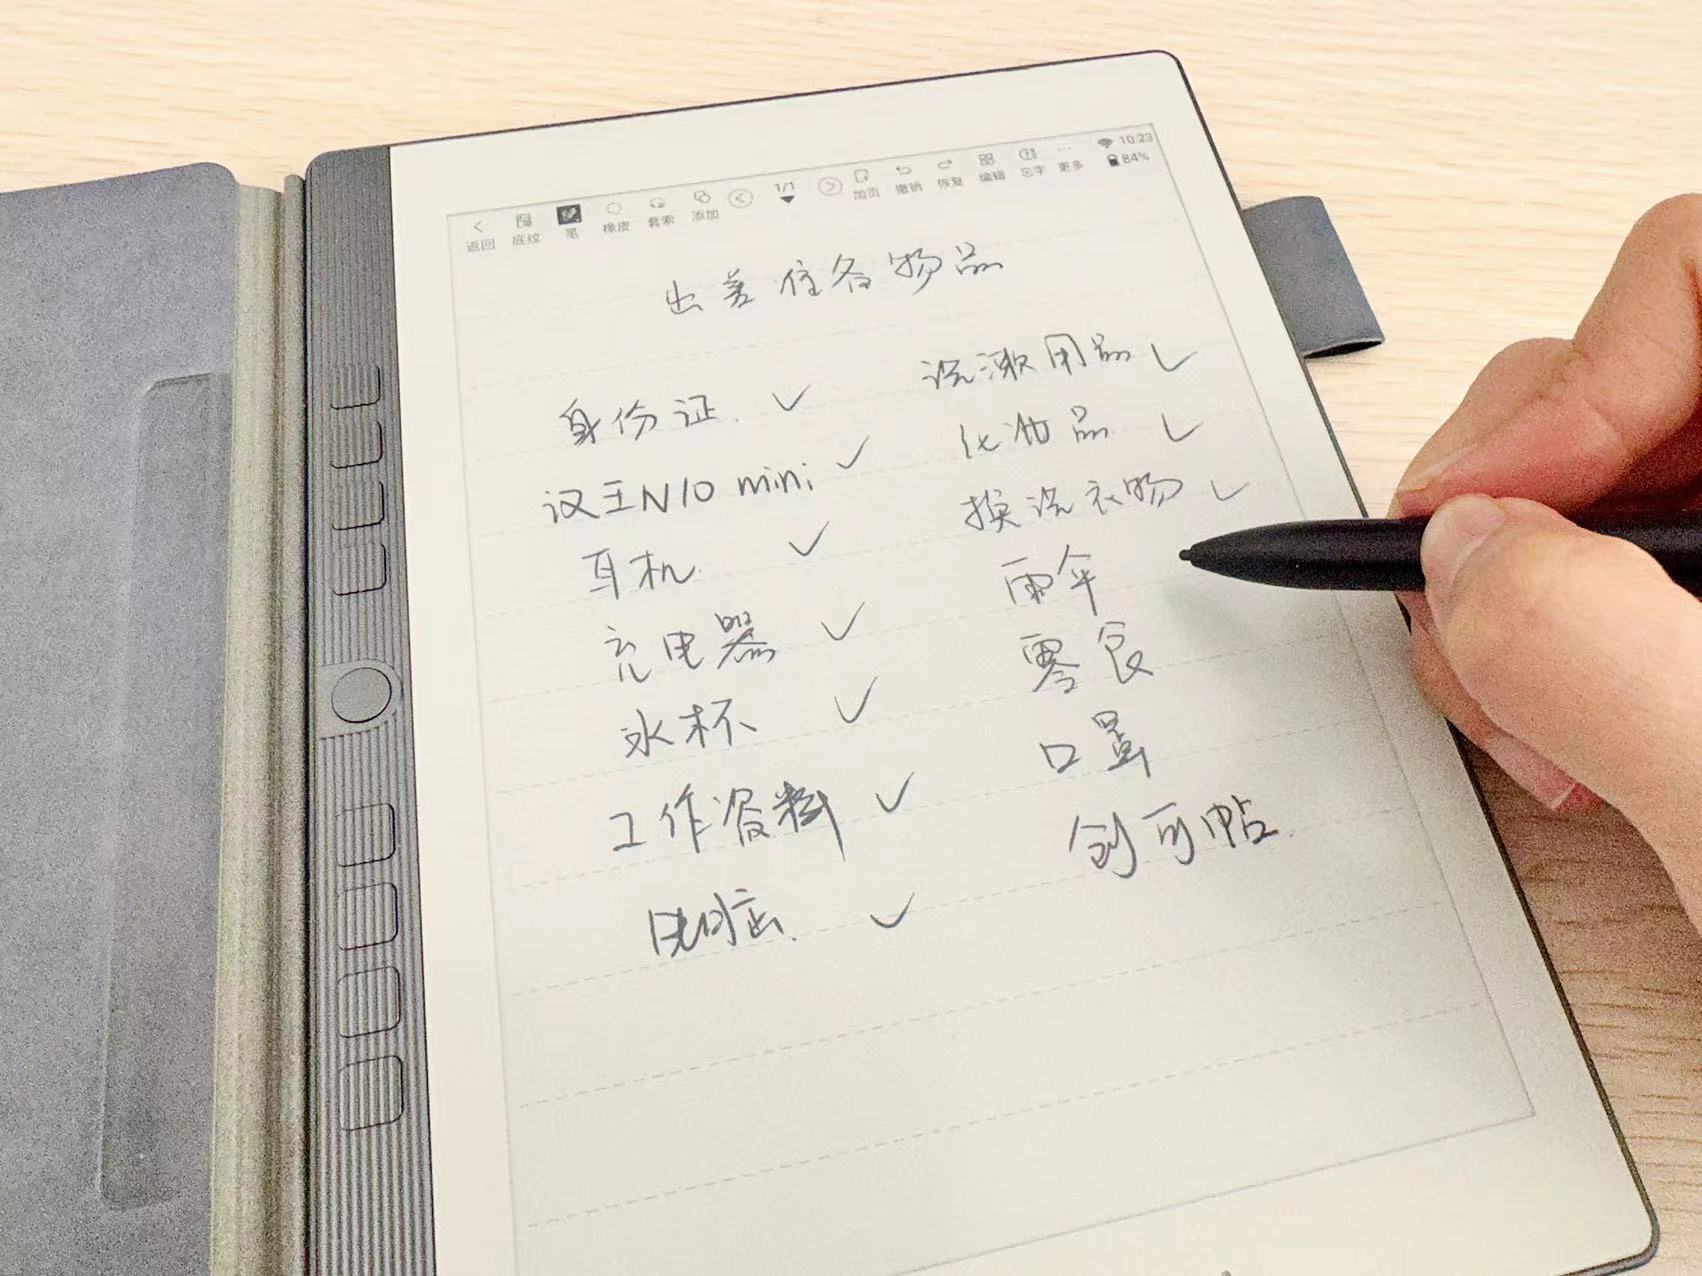 10:23
84%
返回 底纹 笔 橡皮 套索 添加 1/1 加页 撤销 恢复 编辑 忘字 更多
出差准备物品
身份证 ✓
汉王N10 mini ✓
耳机 ✓
充电器 ✓
水杯 ✓
工作资料 ✓
电脑 ✓
洗漱用品 ✓
化妆品 ✓
换洗衣物 ✓
雨伞
零食
口罩
创可帖